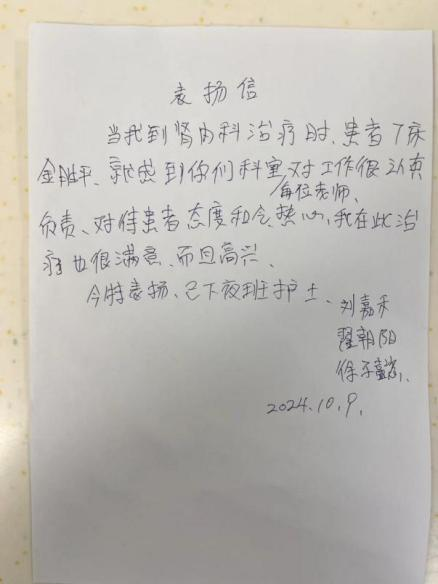 表扬信
当我到肾内科治疗时、患者7床
金胜平、就感到你们科室对工作很认真
每位老师、
负责、对待患者态度和念、热心、我在此治
病也很满意、而且高兴、
今特表扬、已下夜班护士、刘嘉禾
翟朝阳
徐子
2024.10.9.